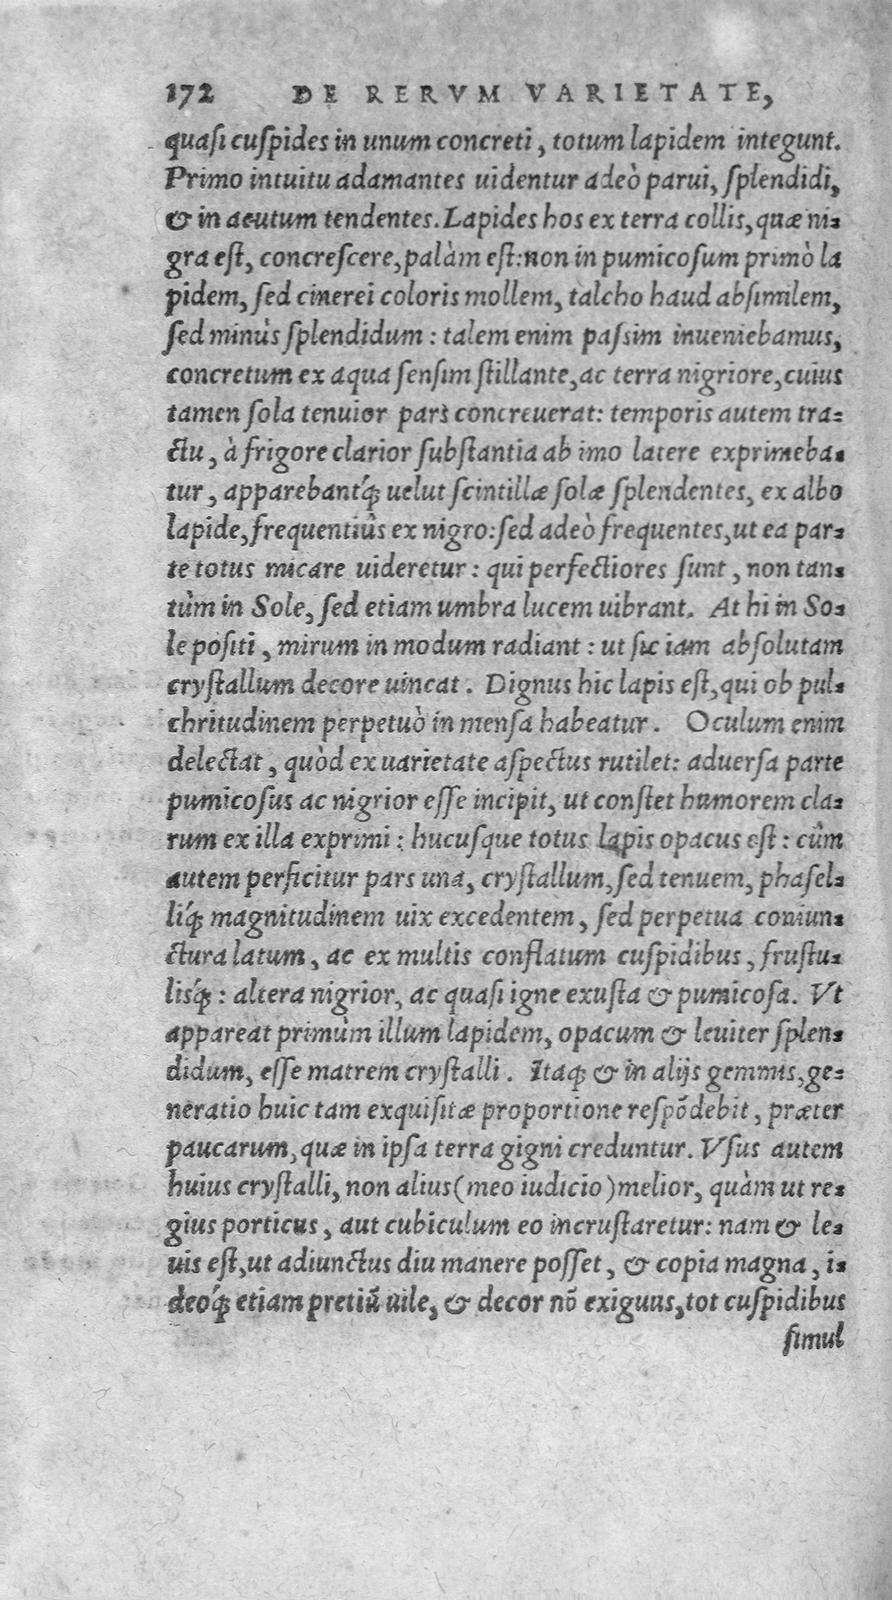 172 DE RERVM VARIETATE,
quasi cuspides in unum concreti, totum lapidem integunt.
Primo intuitu adamantes uidentur adeò parui, splendidi,
& in acutum tendentes. Lapides hos ex terra collis, quæ ni-
gra est, concrescere, palàm est: non in pumicosum primò la
pidem, sed cinerei coloris mollem, talcho haud absimilem,
sed minùs splendidum: talem enim passim inueniebamus,
concretum ex aqua sensim stillante, ac terra nigriore, cuius
tamen sola tenuior pars concreuerat: temporis autem tra-
ctu, à frigore clarior substantia ab imo latere exprimeba-
tur, apparebantq́; uelut scintillæ solæ splendentes, ex albo
lapide, frequentiùs ex nigro: sed adeò frequentes, ut ea par-
te totus micare uideretur: qui perfectiores sunt, non tan-
tùm in Sole, sed etiam umbra lucem uibrant. At hi in So-
le positi, mirum in modum radiant: ut sic iam absolutam
crystallum decore uincat. Dignus hic lapis est, qui ob pul-
chritudinem perpetuò in mensa habeatur. Oculum enim
delectat, quòd ex uarietate aspectus rutilet: aduersa parte
pumicosus ac nigrior esse incipit, ut constet humorem cla-
rum ex illa exprimi: hucusque totus lapis opacus est: cùm
autem perficitur pars una, crystallum, sed tenuem, phasel-
liq́; magnitudinem uix excedentem, sed perpetua coniun-
ctura latum, ac ex multis conflatum cuspidibus, frustu-
lisq́;: altera nigrior, ac quasi igne exusta & pumicosa. Vt
appareat primùm illum lapidem, opacum & leuiter splen-
didum, esse matrem crystalli. Itaq; & in alijs gemmis, ge-
neratio huic tam exquisitæ proportione respõdebit, præter
paucarum, quæ in ipsa terra gigni creduntur. Vsus autem
huius crystalli, non alius (meo iudicio) melior, quàm ut re-
gius porticus, aut cubiculum eo incrustaretur: nam & le-
uis est, ut adiunctus diu manere posset, & copia magna, i-
deoq́; etiam pretiũ uile, & decor nõ exiguus, tot cuspidibus
simul